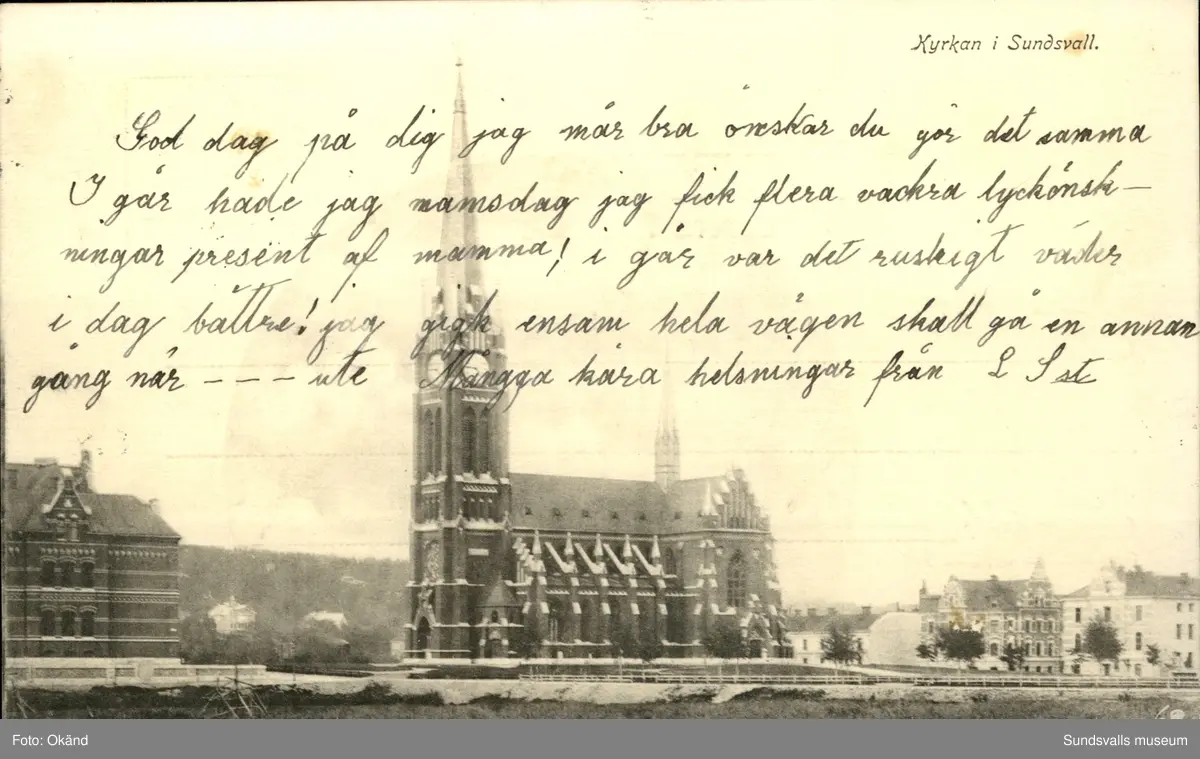 Kyrkan i Sundsvall.
God dag på dig jag mår bra önskar du gör det samma
I går hade jag namsdag jag fick flera vackra lyckönsk-
ningar present af mamma! i går var det ruskigt väder
i dag bättre! jag gigk ensam hela vägen skall gå en annan
gång när - - - - ute Mångga kära helsningar från L Sst
Foto: Okänd
Sundsvalls museum